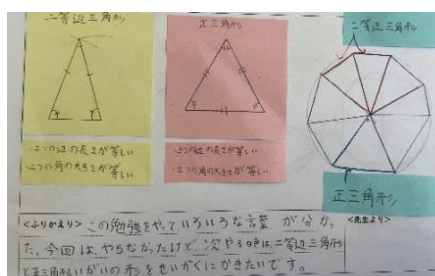 二等辺三角形
正三角形
二等辺三角形
・二つの辺の長さが等しい
・二つの角の大きさが等しい
・三つの辺の長さが等しい
・三つの角の大きさが等しい
正三角形
<ふりかえり> この勉強をやっていろいろな言葉が分かっ
た。今回は、やらなかったけど、次やる時は、二等辺三角形
と正三角形いがいの形をせいかくにかきたいです。
<先生より>